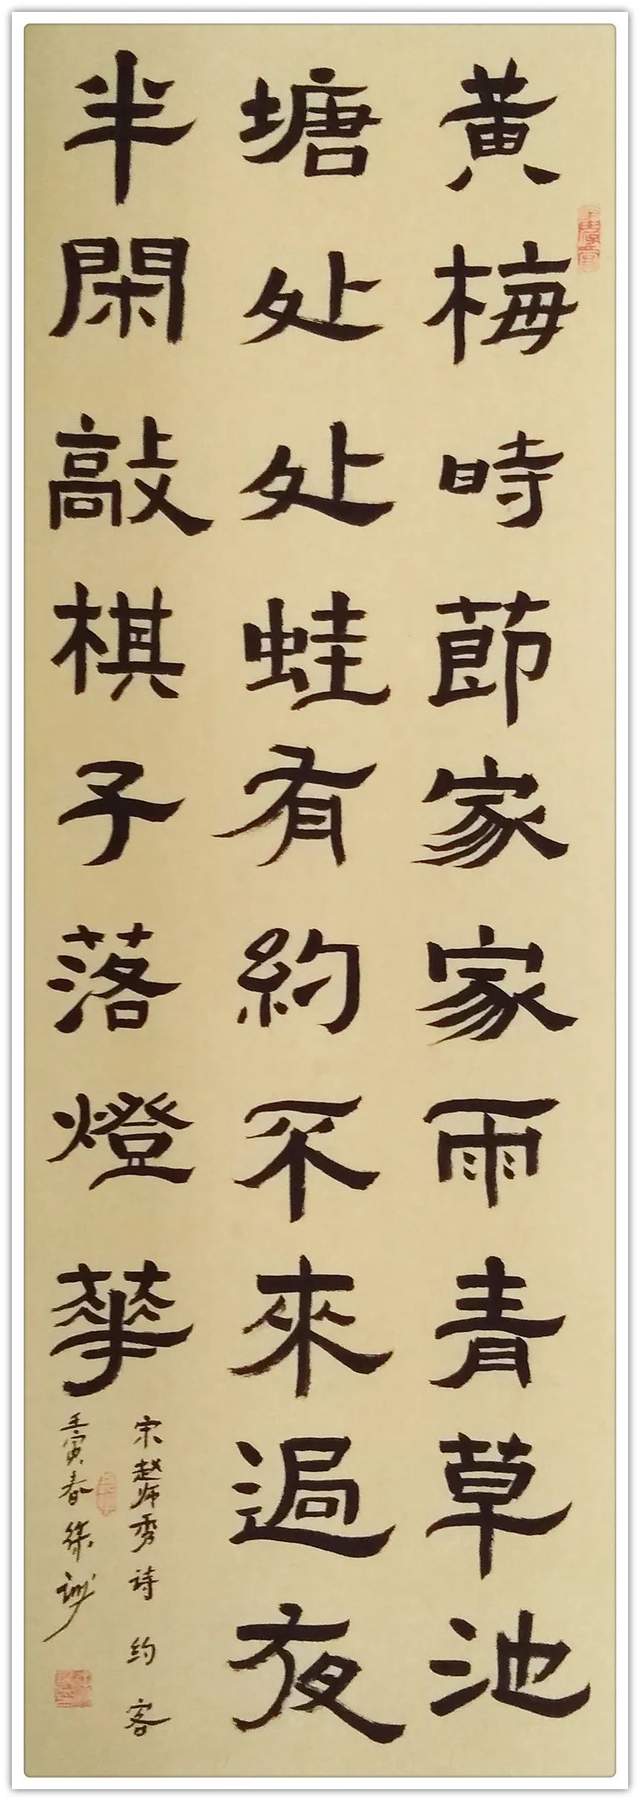 黃梅時節家家雨青草池
塘处处蛙有約不來過夜
半閑敲棋子落燈華
宋趙师秀诗 约客
壬寅春 徐